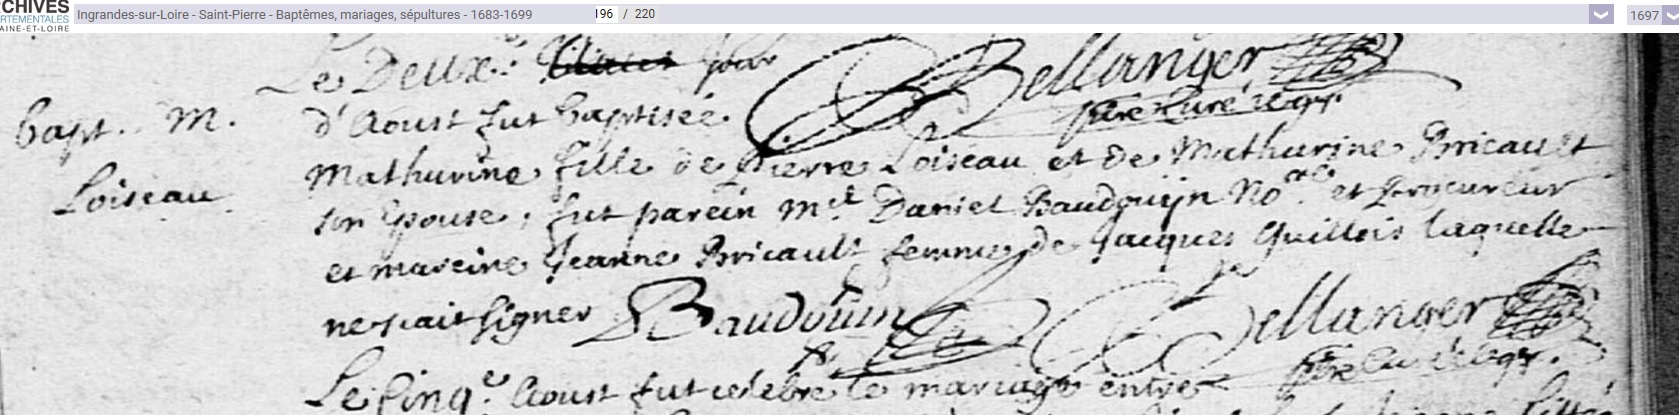 CHIVES
ARTEMENTALES
AINE-ET-LOIRE
Ingrandes-sur-Loire - Saint-Pierre - Baptêmes, mariages, sépultures - 1683-1699
196 / 220
1697
Le Deux.e jour Bellanger
d'Aoust fut baptisée. ptre Curé
bapt. M.
Loiseau
Mathurine fille de Pierre Loiseau et de Mathurine Bricault
son Epouse, fut parein M.e Daniel Baudouyn No.re et Procureur
et mareine Jeanne Bricault femme de Jacques Guillois laquelle
ne scait signer Baudouin Bellanger
ptre Curé
Le Cinq.e Aoust fut celebré le mariage entre